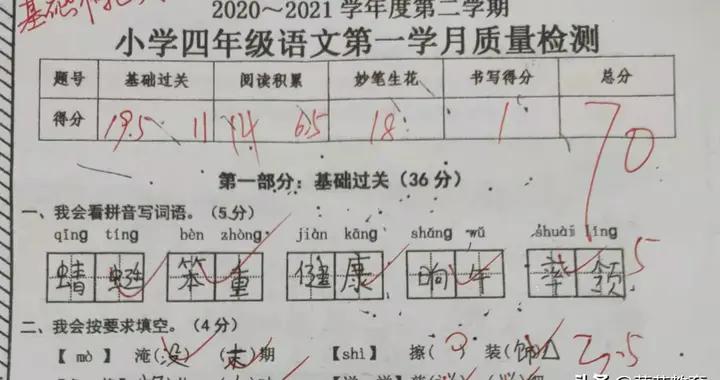 基础
2020~2021学年度第二学期
小学四年级语文第一学月质量检测
题号 基础过关 阅读积累 妙笔生花 书写得分 总分
得分 19.5 11 14 6.5 18 1 70
第一部分:基础过关(36分)
一、我会看拼音写词语。(5分)
qīng tíng bèn zhòng jiàn kāng shǎng wǔ shuài lǐng
蜻 蜓 笨 重 健 康 晌 午 率 领 5
二、我会按要求填空。(4分)
【mò】 淹(没) (末)期 【shì】 擦( ) 装(饰) 2.5